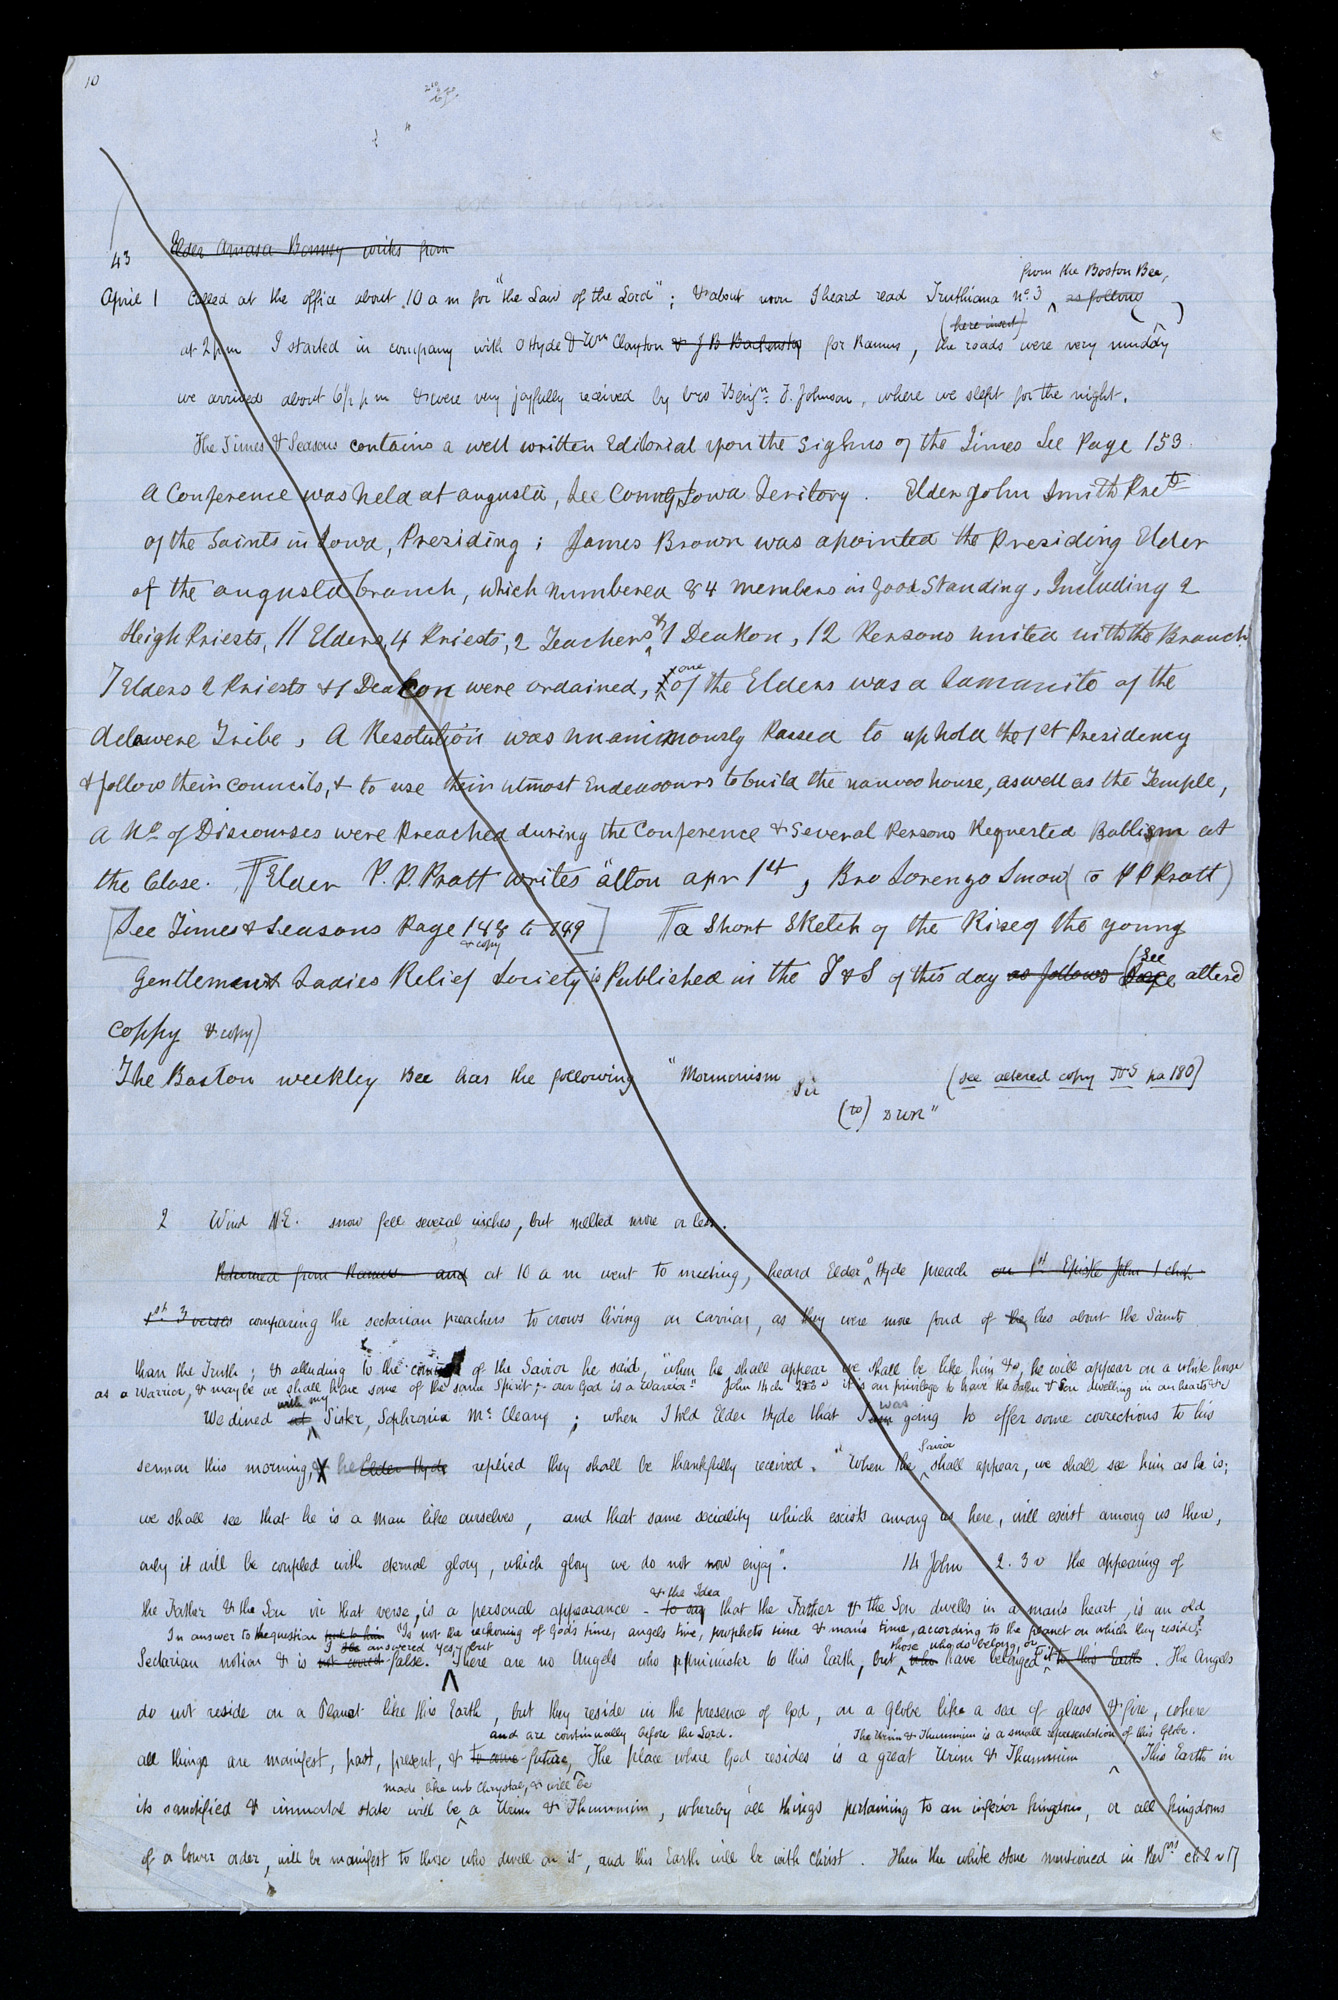 10
43
Elder Amasa Bonney writes from
from the Boston Bee,
April 1 Called at the office about 10 a m for "the Law of the Lord"; & about noon I heard read Truthiana no. 3 as follows
(here insert)
at 2 p m I started in company with O Hyde & Wm Clayton & J B Backenstos for Ramus, the roads were very muddy
we arrived about 6½ p m & were very joyfully received by bro Benjn. F. Johnson, where we slept for the night.
The Times & Seasons contains a well written Editorial upon the Sighns of the Times See Page 153.
A Conference was held at augusta, Lee County Iowa Teritory. Elder John Smith Pret
of the Saints in Iowa, Presiding; James Brown was apointed the Presiding Elder
of the augusta branch, which numbered 84 members in good Standing, Including 2
Heigh Priests, 11 Elders, 4 Priests, 2 Teachers & 1 Deakon, 12 Persons united with the Branch
7 Elders 2 Priests & 1 Deacon were ordained, one of the Elders was a Lamanite of the
delawere Tribe, A Resolution was unanimously Passed to uphold the 1st Presidency
& follow their councils, & to use their utmost Endeavours to build the nauvoo house, as well as the Temple,
A No of Discourses were Preached during the Conference & Several Persons Requested Babtism at
the Close. Elder P. P. Pratt writes "alton apr 1st, Bro Lorenzo Snow (to P P Pratt)
[See Times & Seasons Page 148 to 149] a Short Sketch of the Rise of the young
& copy
(See
Gentlemen & Ladies Relief Society is Published in the T & S of this day as follows Page altered
coppy & copy)
The Boston weekley Bee has the following "Mormonism Sir (see altered copy T&S pa 180)
(to) DWR"
2 Wind N E. snow fell several inches, but melted more or less.
Returned from Ramus and at 10 a m went to meeting, heard Elder O Hyde preach on 1st Epistle John 1 chap
1st 3 verses comparing the sectarian preachers to crows living on carrion, as they were more fond of the lies about the Saints
than the Truth; & alluding to the coming of the Savior he said, "when he shall appear we shall be like him &c, he will appear on a white horse
as a warrior, & maybe we shall have some of the same Spirit;- our God is a Warrior" John 14 ch 23 v it is our privilege to have the Father & Son dwelling in our hearts &c
with my
was
We dined at Sister Sophronia Mc Cleary; when I told Elder Hyde that I am going to offer some corrections to his
Savior
sermon this morning, & he Elder Hyde replied they shall be thankfully received. "When the shall appear, we shall see him as he is;
we shall see that he is a Man like ourselves, and that same sociality which exists among us here, will exist among us there,
only it will be coupled with eternal glory, which glory we do not now enjoy". 14 John 2.3 v the appearing of
& the Idea
the Father & the Son in that verse, is a personal appearance - to say that the Father & the Son dwells in a man's heart, is an old
In answer to the question put to him "Is not the reckoning of God's time, angels time, prophets time & man's time, according to the planet on which they reside?
I he answered yes, but
those who do belong, or
Sectarian notion & is not correct false. There are no Angels who administer to this Earth, but who have belonged to it to this Earth. The Angels
do not reside on a Planet like this Earth, but they reside in the presence of God, on a Globe like a sea of glass & fire, where
and are continually before the Lord.
The Urim & Thummim is a small representation of this Globe.
all things are manifest, past, present, & to come future, The place where God resides is a great Urim & Thummim This Earth in
made like unto Chrystal, & will be
its sanctified & immortal state will be a Urim & Thummim, whereby all things pertaining to an inferior kingdom, or all kingdoms
of a lower order, will be manifest to those who dwell on it, and this Earth will be with Christ. Then the white stone mentioned in Revns ch 2 v 17